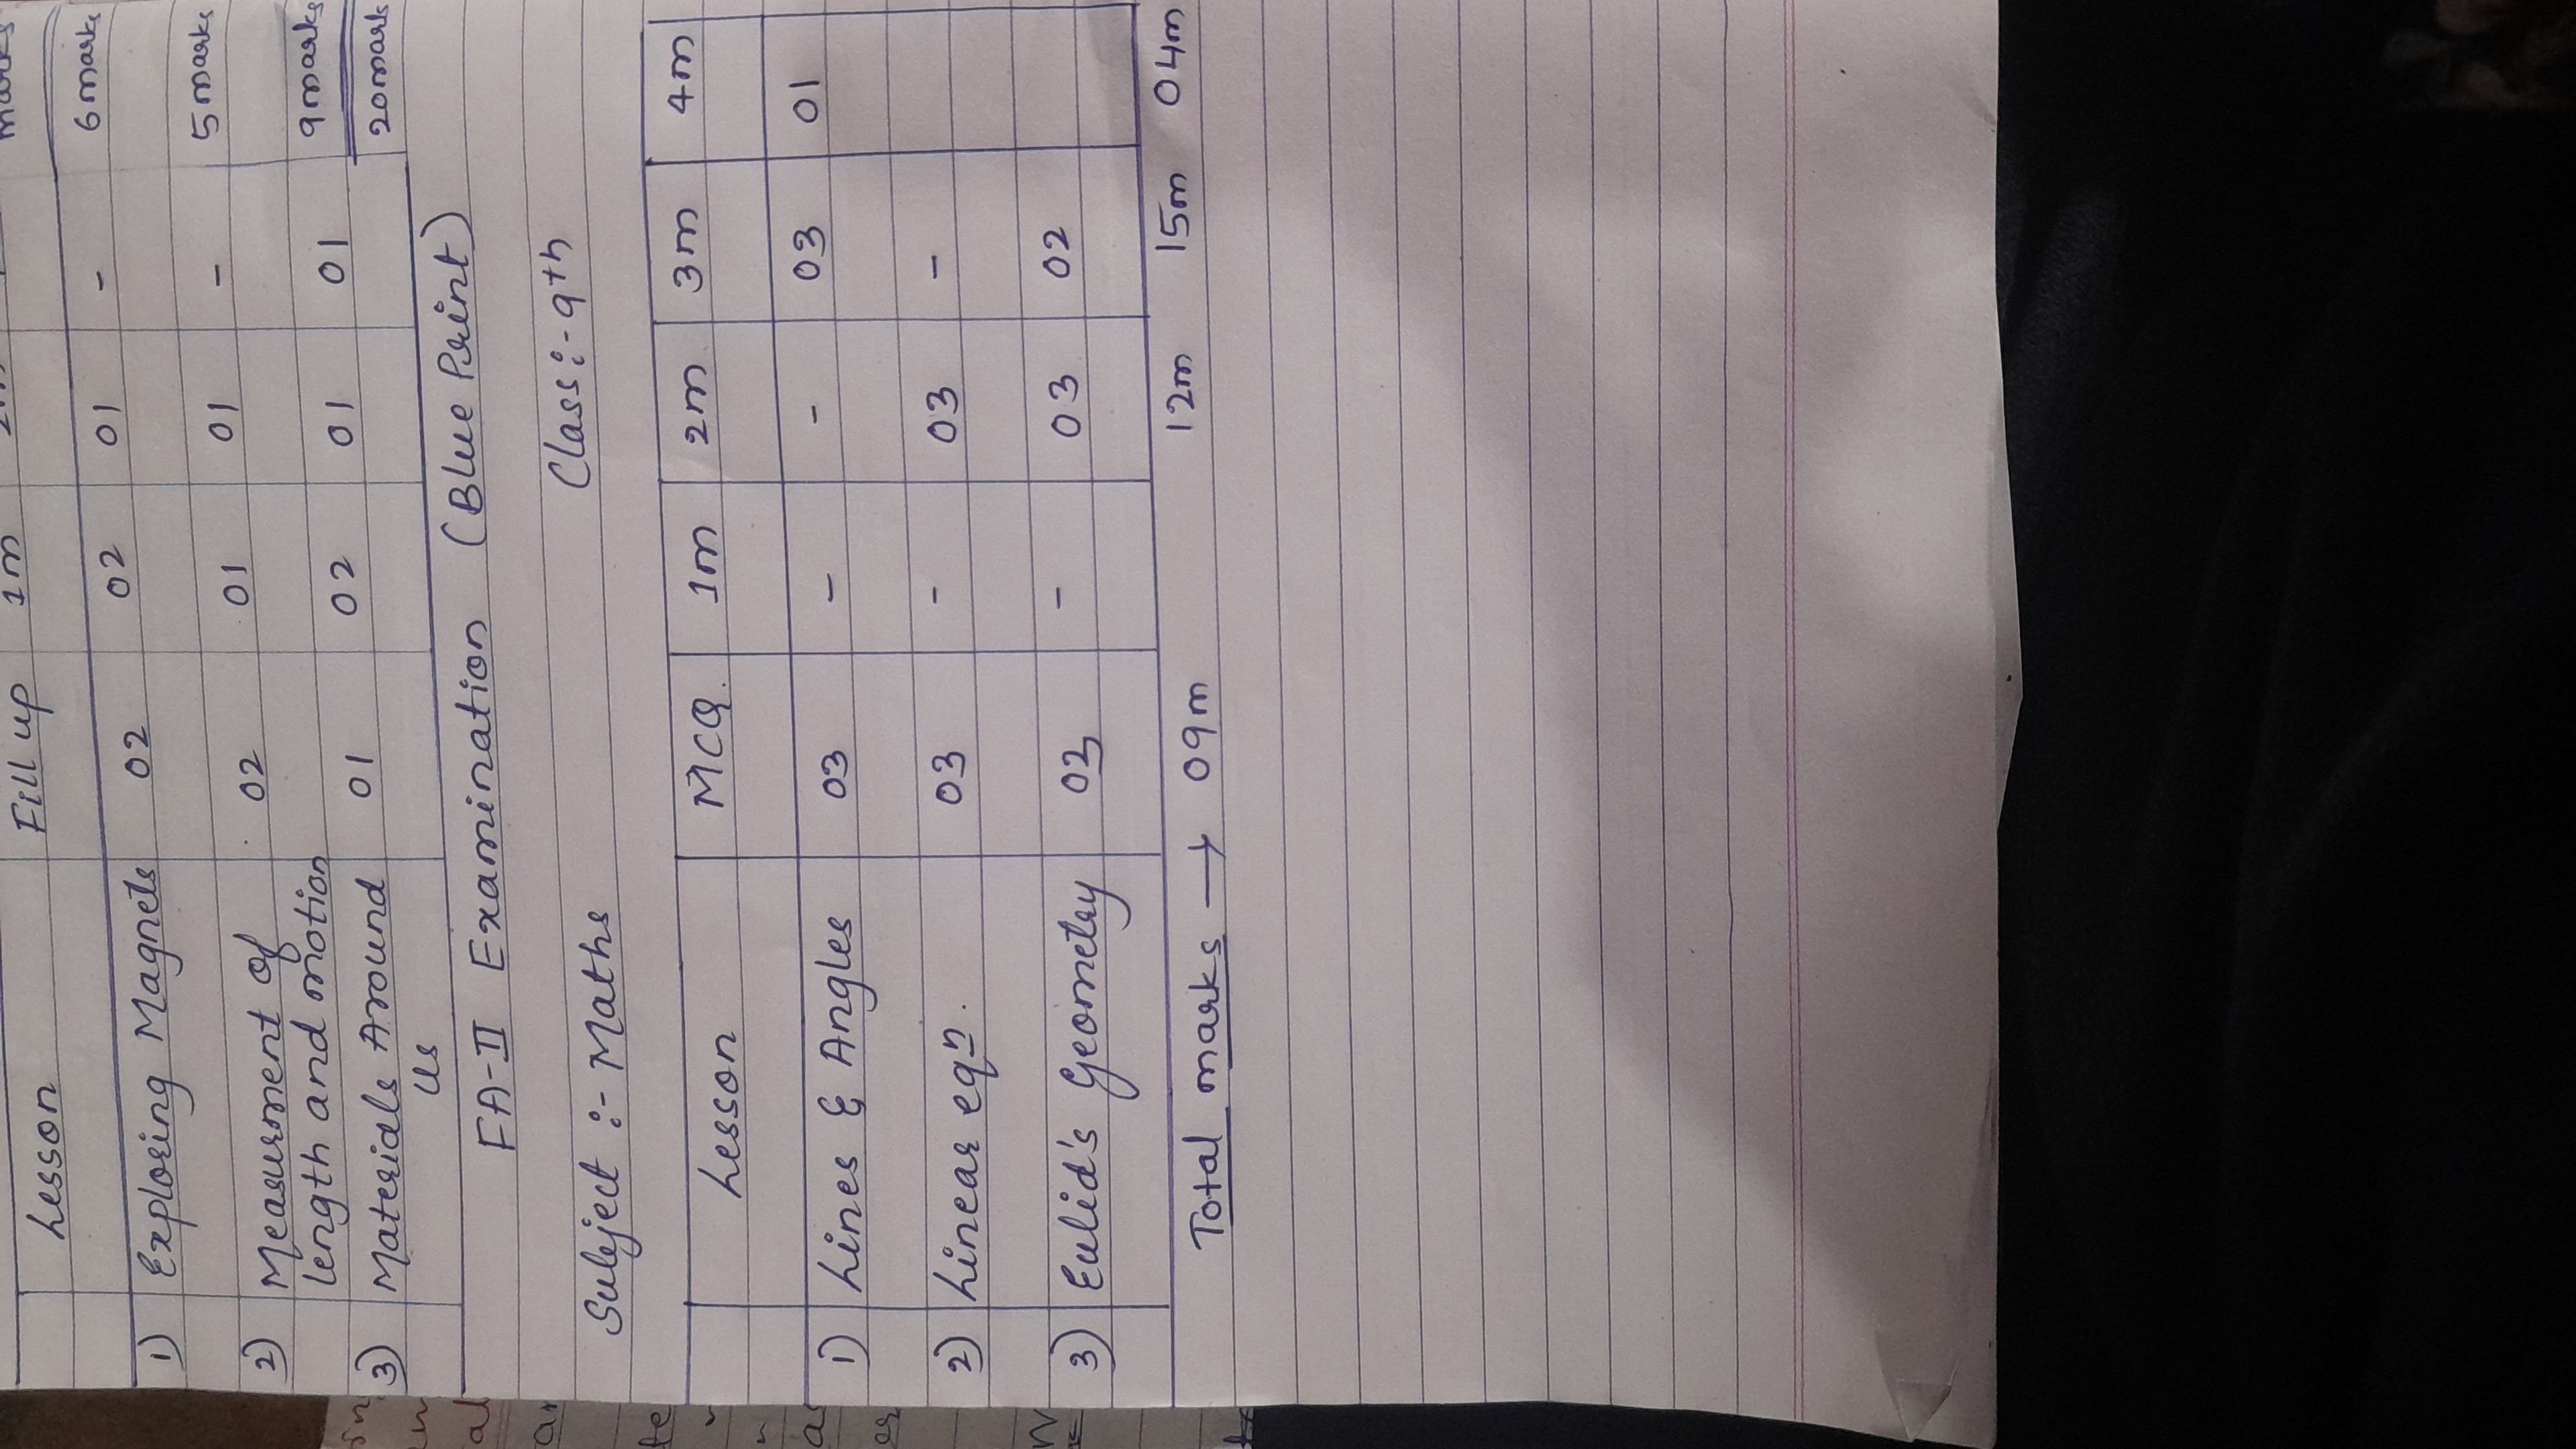 marks
Lesson Fill up 1m 2m
1) Exploring Magnets 02 02 01 - 6 marks
2) Measurment of length and motion 02 01 01 - 5 marks
3) Materials Around Us 01 02 01 01 9 marks
20 mark
FA-II Examination (Blue Print)
Subject :- Maths Class :- 9th
Lesson MCQ. 1m 2m 3m 4m
1) Lines & Angles 03 - - 03 01
2) Linear eqn. 03 - 03 -
3) Eulid's Geometry 03 - 03 02
Total marks → 09m 12m 15m 04m